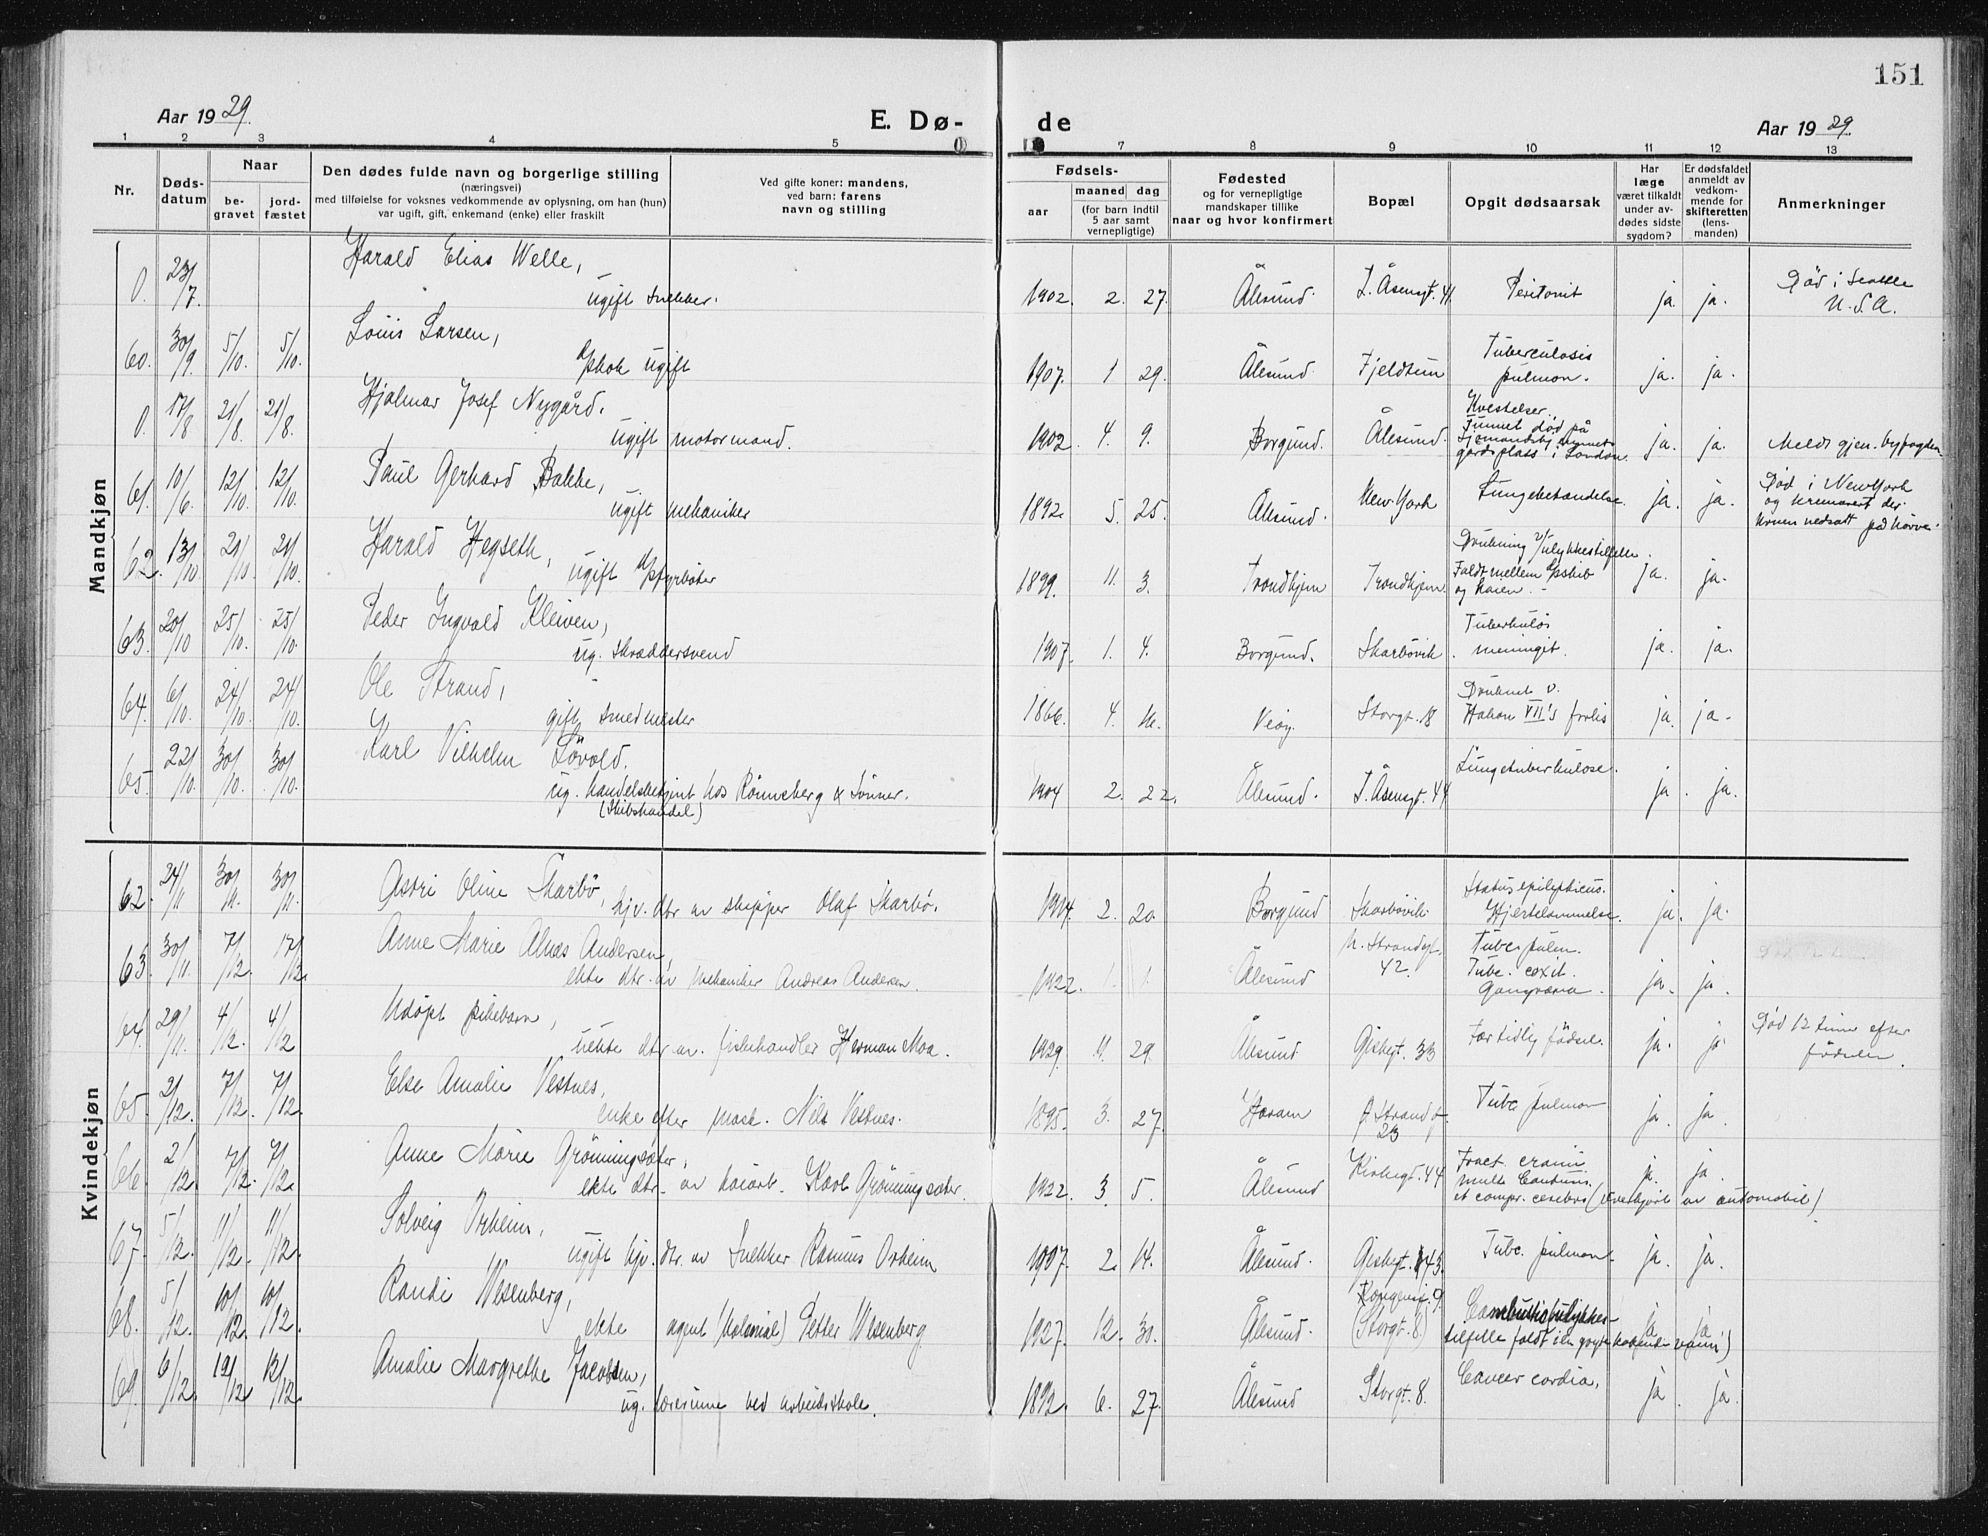 151
Aar 1929. E. Dø- de Aar 1929.
1 2 3 4 5 7 8 9 10 11 12 13
Nr.
Døds-
datum
Naar
be-
gravet
jord-
fæstet
Den dødes fulde navn og borgerlige stilling
(næringsvei)
med tilføielse for voksnes vedkommende av oplysning, om han (hun)
var ugift, gift, enkemand (enke) eller fraskilt
Ved gifte koner: mandens,
ved barn: farens
navn og stilling
Fødsels-
aar
maaned dag
(for barn indtil
5 aar samt
vernepligtige)
Fødested
og for vernepligtige
mandskaper tillike
naar og hvor konfirmert
Bopæl
Opgit dødsaarsak
Har
læge
været tilkaldt
under av-
dødes sidste
sygdom?
Er dødsfaldet
anmeldt av
vedkom-
mende for
skifteretten
(lens-
manden)
Anmerkninger
Mandkjøn
0. 23/7. Harald Elias Welle,
ugift snekker. 1902. 2. 27. Ålesund. I. Åsensgt. 41. Peritonit ja. ja. Død i Seattle
U.S.A.
60. 30/9. 5/10. 5/10. Louis Larsen,
ugift 1907. 1 29. Ålesund. Fjeldtun Tuberculosis
pulmon. ja. ja.
0. 17/8 21/8. 21/8. Hjalmar Josef Nygård,
ugift motormand. 1902. 4. 9. Borgund. Ålesund. Kvestelser.
Funnet død på
i London. ja. ja. Meldt gjen. byfogden
61. 10/6. 12/10. 12/10. Paul Gerhard Bakke,
ugift mekaniker 1892. 5. 25. Ålesund. New York Lungebetændelse. ja. ja. Død i New York
og kremeret der.
62. 13/10 21/10. 21/10. Harald Hegseth,
ugift fyrbøter 1899. 11. 3. Trondhjem Trondhjem. Drukning v/ulykkestilfelle.
Faldt mellem skib
og kaien. ja. ja.
63. 20/10 25/10. 25/10. Peder Ingvald Kleiven,
ug. skræddersvend 1907. 1. 4. Borgund. Skarbövik. Tuberkuløs
meningit. ja. ja.
64. 6/10. 24/10. 24/10. Ole Strand,
gift smedmester 1866. 4. 16. Veöy. Storgt. 18 Druknet v.
Hakon VII's forlis ja. ja.
65. 22/10. 30/10. 30/10. Karl Vilhelm Lövold.
ug. handelsbetjent hos Rönneberg & Sönner.
(Skibshandel) 1904 2. 22. Ålesund. I. Åsensgt. 44 Lungetuberkulose. ja. ja.
Kvindekjøn
62. 24/11 30/11. 30/11. Astri Oline Skarbö,
hjv. dtr av skipper Olaf Skarbö. 1914. 2. 20. Borgund Skarbövik. Status epilepticus.
Hjertelammelse. ja. ja.
63. 30/11. 7/12. 17/12. Anne Marie Alnæs Andersen,
ekte dtr. av mekaniker Andreas Andersen. 1922. 1. 1. Ålesund N. Strandgt.
42. Tubc. pulm.
Tubc. coxit.
Gangræna. ja. ja.
64. 29/11. 4/12. 4/12 Udöpt pikebarn,
uekte dtr. av. fiskehandler Herman Moa. 1929. 11. 29. Ålesund Giskegt. 33 For tidlig födsel. ja. ja Død 12 timer efter
födselen.
65. 2/12. 7/12. 7/12. Else Amalie Vestnes,
enke efter mask. Nils Vestnes. 1895. 3. 27. Haram Ø. Strandg.
23 Tubc pulmon ja. ja.
66. 2/12. 7/12. 7/12. Anne Marie Grönningsæter,
ekte dtr. av kaiarb. Karl Grönningsæter. 1922. 3 5. Ålesund Kirkegt. 44 Fract. cranii
mult. Contus.
et compr. cerebri (Overkjørt av automobil) ja. ja.
67. 5/12. 11/12. 11/12. Solveig Orheim,
ugift hjv. dtr. av snekker Rasmus Orheim 1907. 2. 14. Ålesund. Giskegt. 43. Tubc. pulmon. ja. ja.
68. 5/12. 10/12. 10/12. Randi Wesenberg,
ekte agent (Kolonial) Petter Wesenberg 1927. 12. 30. Ålesund. Kongensg. 9.
(Storgt. 8) Combustio (ulykkes-
tilfelle faldt i en gryte kokende vann) ja ja
69. 6/12. 12/12 12/12. Amalie Margrethe Jacobsen,
ug. lærerinne ved arbeidsskole. 1892. 6. 27. Ålesund Storgt. 8. Cancer cordia. ja. ja.